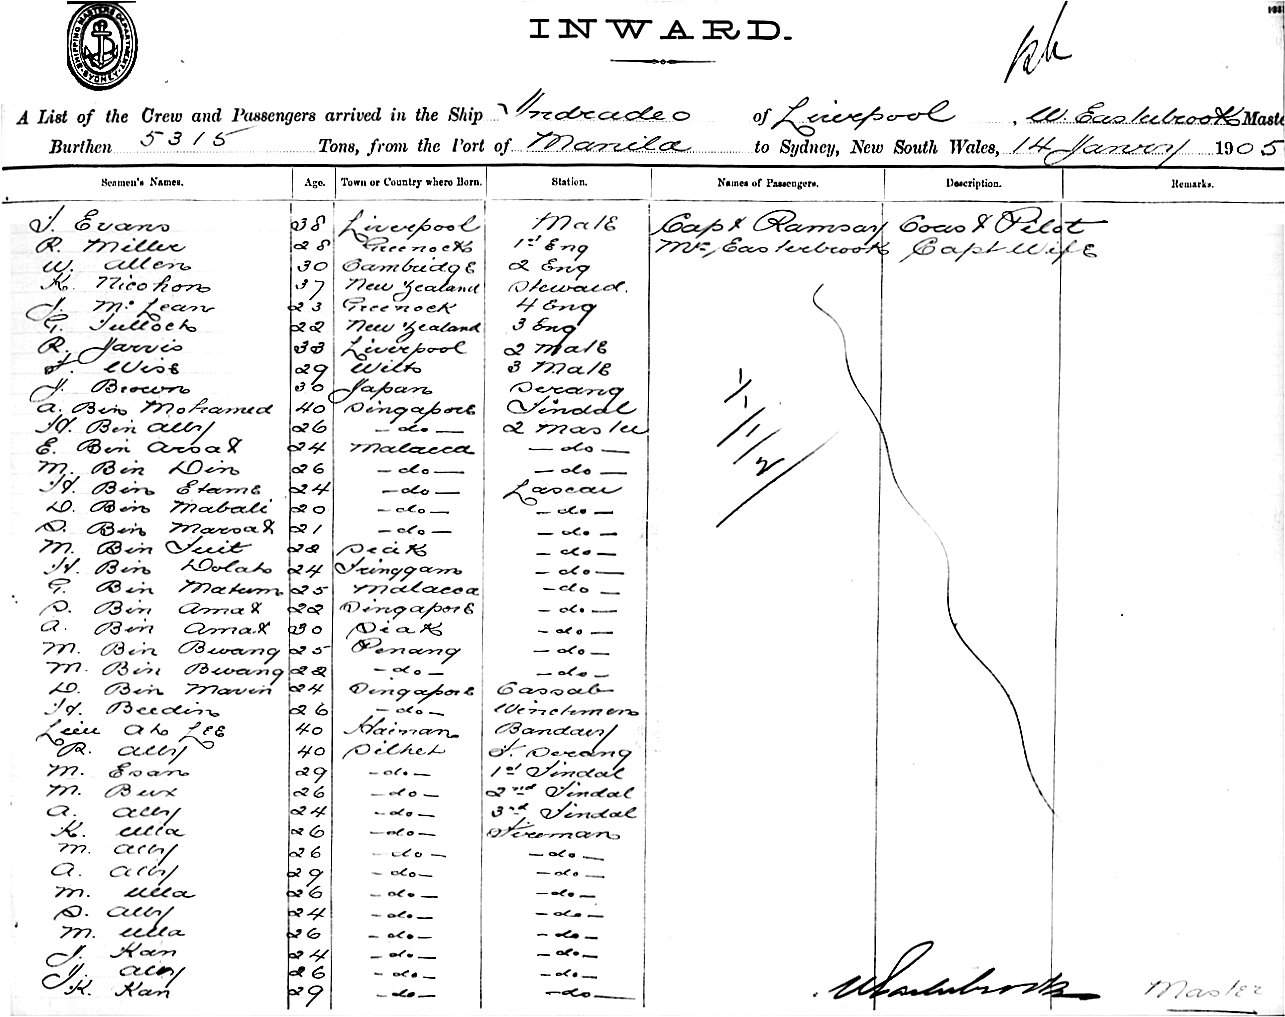 SHIPPING MASTERS DEPARTMENT SYDNEY
INWARD.
A List of the Crew and Passengers arrived in the Ship Indradeo of Liverpool, W. Easterbrook Maste
Burthen 5315 Tons, from the Port of Manila to Sydney, New South Wales, 14 Janury 1905
Seamen's Names. Age. Town or Country where Born. Station. Names of Passengers. Description. Remarks.
J. Evans 38 Liverpool Mate Capt Ramsay Coast Pilot
R. Miller 28 Greenock 1st Eng Mrs Easterbrook Capt Wife
W. Allen 30 Cambridge 2 Eng
K. Nicohon 37 New Zealand Steward.
J. Mc Lean 23 Greenock 4 Eng
G. Tulloch 22 New Zealand 3 Eng
R. Jarvis 33 Liverpool 2 Mate
F. Wise 29 Wilts 3 Mate
J. Brown 30 Japan Serang
A. Bin Mohamed 40 Singapore Tindal
H. Bin Ally 26 -do- 2 Master
E. Bin Arsat 24 Malacca -do-
M. Bin Din 26 -do- -do-
H. Bin Etame 24 -do- Lascar
D. Bin Mabali 20 -do- -do-
S. Bin Marsat 21 -do- -do-
M. Bin Tuit 28 Siak -do-
H. Bin Dolah 24 Tringgam -do-
G. Bin Matum 25 Malacca -do-
S. Bin Amat 22 Singapore -do-
A. Bin Amat 30 Siak -do-
M. Bin Bwang 25 Penang -do-
M. Bin Bwang 28 -do- -do-
D. Bin Mavin 24 Singapore Cassab
H. Beedin 26 -do- Winchmen
Lieu Ah Lee 40 Hainan Bandary
R. Ally 40 Silhet F. Serang
M. Esan 29 -do- 1st Tindal
M. Bux 26 -do- 2nd Tindal
A. Ally 24 -do- 3rd Tindal
K. Ulla 26 -do- Fireman
M. Ally 26 -do- -do-
A. Ally 29 -do- -do-
M. Ulla 26 -do- -do-
S. Ally 24 -do- -do-
M. Ulla 26 -do- -do-
J. Kan 24 -do- -do-
J. Ally 26 -do- -do-
K. Kan 29 -do- -do-
W Easterbrook Master